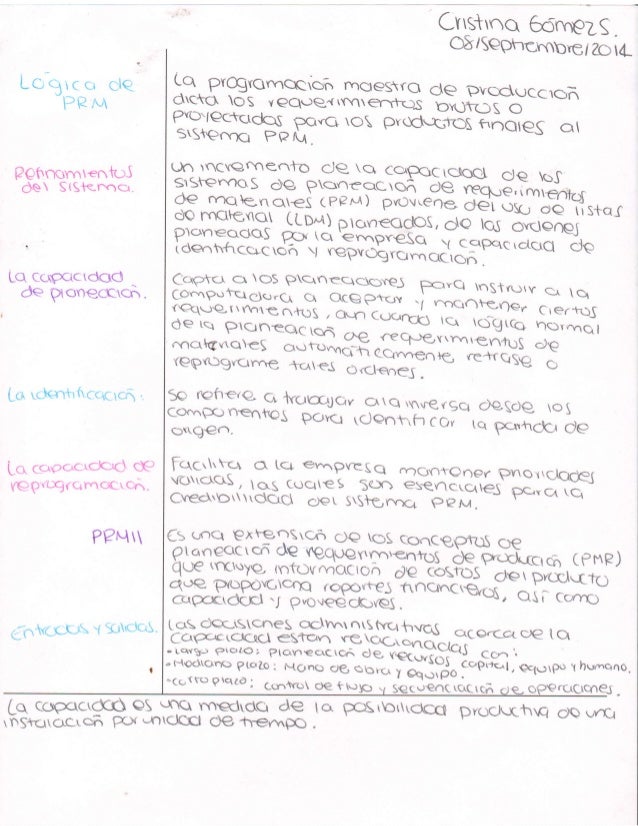 Cristina Gómez S.
08/septiembre/2014
Lógica de
PRM
La programación maestra de producción
dicta los requerimientos brutos o
proyectados para los productos finales al
sistema PRM.
Refinamientos
del sistema.
un incremento de la capacidad de los
sistemas de planeación de requerimientos
de materiales (PRM) proviene del uso de listas
de material (LDM) planeadas, de las ordenes
planeadas por la empresa y capacidad de
identificación y reprogramación.
La capacidad
de planeación.
Capta a los planeadores para instruir a la
computadora a aceptar y mantener ciertos
requerimientos, aun cuando la lógica normal
de la planeación de requerimientos de
materiales automáticamente retrase o
reprograme tales órdenes.
La identificación:
se refiere a trabajar a la inversa desde los
componentes para identificar la partida de
origen.
La capacidad de
reprogramación.
Facilita a la empresa mantener prioridades
validas, las cuales son esenciales para la
credibilidad del sistema PRM.
PRMII
Es una extensión de los conceptos de
planeación de requerimientos de producción (PMR)
que incluye información de costos del producto
que proporciona reportes financieros, así como
capacidad y proveedores.
Entradas y salidas.
Las decisiones administrativas acerca de la
capacidad estan relacionadas con:
• Largo plazo: planeación de recursos capital, equipo y humano.
• Mediano plazo: Mano de obra y equipo.
• corto plazo: control de flujo y secuenciación de operaciones.
La capacidad es una medida de la posibilidad productiva de una
instalación por unidad de tiempo.